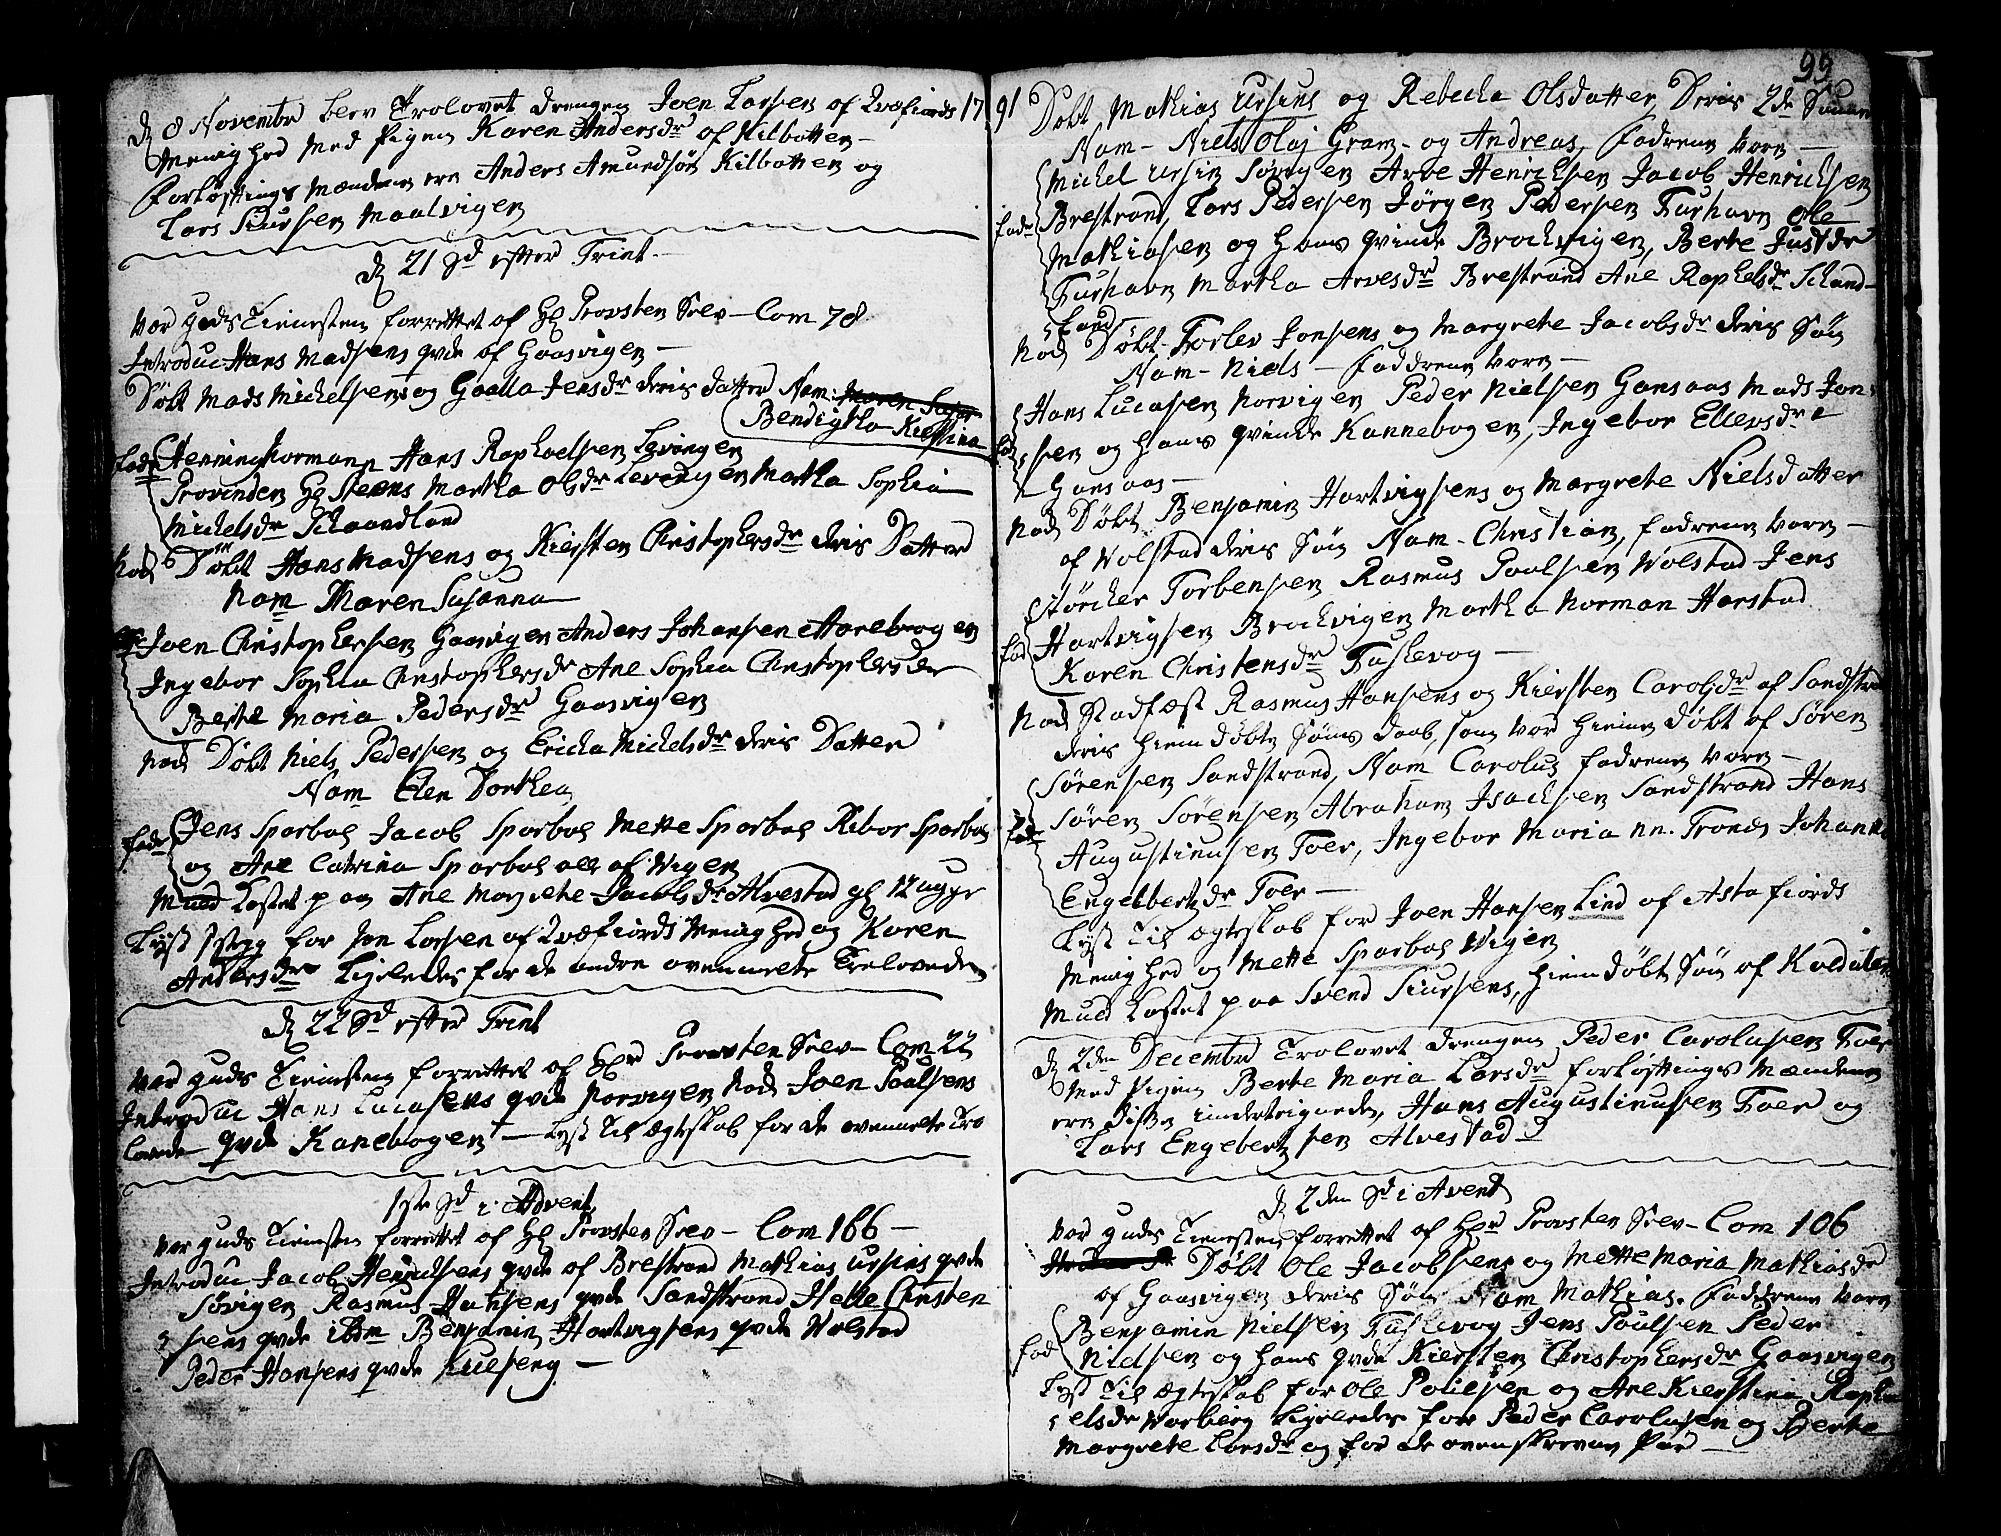 d 8 Novembr blev Trolovet drengen Joen Larsen af Qvæfiords 17
Menighed Med Pigen Karen Andersdr af Kilbotten
Forløftings Mændene ere Anders Amundsøn Kilbotten og
Lars Siursen Maalvigen
d 21 Sd efter Trint.
Var guds Tienesten forrettet af Hl Provsten Srev - Com 78
Introduc Hans Madsens qvde af Gaasvigen
Døbt Mads Michelsens og Goella Jensdr deris datter Nam: Maren Susa
Bendigtha Kiestina
fadr Henning Normann Hans Raphaelsen Levingen
Provinden Hl Steens Martha Olsdr Levingen Martha Sophia
Michelsdr Schaandland
Nod Døbt Hans Madsens og Kiersten Christophersdr deris Datter
Nam Maren Susanna
Joen Christophersen Gaasvigen Anders Johansen Harebogen
Ingebor Sophia Christophersdr Ane Sophia Christophersder
Berte Maria Pedersdr Gaasvigen
Nod Døbt Niels Pedersen og Ericka Michelsdr deris Datter
Nam Elen Dorthea
fadr Jens Sparboe Jacob Sparboe Mette Sparboe Rebor Sparboe
og Ane Catrina Sparboe alle af Vigen
Muld Kastet paa Ane Margrete Jacobsdr Alvestad gl 12 uger
Lyst for Jon Larsen af Qvæfiords Menighed og Karen
Andersdr Ligeledes for de andre ovenmelte Trolovede
d 22 Sd efter Trint
Var guds Tienesten forrettet af Hr Provsten Srev - Com 22
Introduc Hans Lucasens qvde Norvigen Nod Joen Paalsens
qvde Kanebogen - Lyst Til Ægteskab for de ovenmelte Tro
lovede
1ste Sd i Advent
Var guds Tienesten forrettet af Hl Provsten Srev - Com 166
Introduc Jacob Henricksens qvde af Brestrand Mathias Ursins qvde
Sørvigen Rasmus Hansens qvde Sandstrand Helle Christen
sens qvde ibdm Benjamin Hartvigsens qvde Wolstad
Peder Hansens qvde Kulseng
99
91 Døbt Mathias Ursins og Rebecka Olsdatter, Deris 2de Sønner
Nam - Niels Olaj Gram - og Andreas, Fadrene Vare
Michel Ursin Sørvigen Arve Henricksen Jacob Henricksen
fadr Brestrand, Lars Pedersen Jørgen Pedersen Furhavn Ole
Mathiasen og hans qvinde Brochvigen, Berte Justdr
Furhavn Martha Arvesdr Brestrand Ane Raphelsdr Schand
land
Nod Døbt Torlev Jonsens og Margrete Jacobsdr deris Søn
Nam - Niels - Faddrene Vare
Hans Lucasen Norvigen Peder Nielsen Gansaas Mads Jon
fad sen og hans qvinde Kannebogen, Ingebor Ellevsdr
Gansaas
Nod Døbt Benjamin Hartvigsens og Margrete Nielsdatter
af Wolstad deris Søn Nam - Christian, fadrene Vare
Størcker Torbensen Rasmus Paalsen Wolstad Jens
fad Hartvigsen Brochvigen Martha Norman Harstad
Karen Christensdr Fuslevog
Nod Stadfæst Rasmus Hansens og Kiersten Carolsdr af Sandstra
deris hiemdøbte Søns daab, som var hieme døbt af Søren
Sørensen Sandstrand, Nam Carolus fadrene vare
Søren Sørensen Abraham Isachsen Sandstrand Hans
fadr Augustinusen Foer, Ingebor Maria nn. Trondes Johann
Engelbertzdr Foer
Lyst Til Ægteskab for Joen Hansen Lind af Astafiords
Menighed og Mette Sparboe Wigen
Muld Kastet paa Svend Siursens, hiemdøbt Søn af
d 2den Decembr Trolovet drengen Peder Carolusen Foer
Med Pigen Berte Maria Larsdr Forløftings Mændene
ere disse undertegnede, Hans Augustinusen Foer og
Lars Engebertzsen Alvestad
d 2den Sd i Avent
Var guds Tienesten forrettet af Hr Provsten Srev - Com 106
Døbt Ole Jacobsens og Mette Maria Mathiasdr
af Gaasvigen deris Søn Nam Mathias. Faddrene Vare
Benjamin Nielsen Fuslevog Jens Poulsen Peder
fad Nielsen og hans qvde Kiersten Christophersdr Gaasvigen
Lyst Til Ægteskab for Ole Poulsen og Ane Kierstina Rapha
elsdr Warberg Ligeledes for Peder Carolusen og Berte
Margrete Larsdr og for de ovenskrevne Par